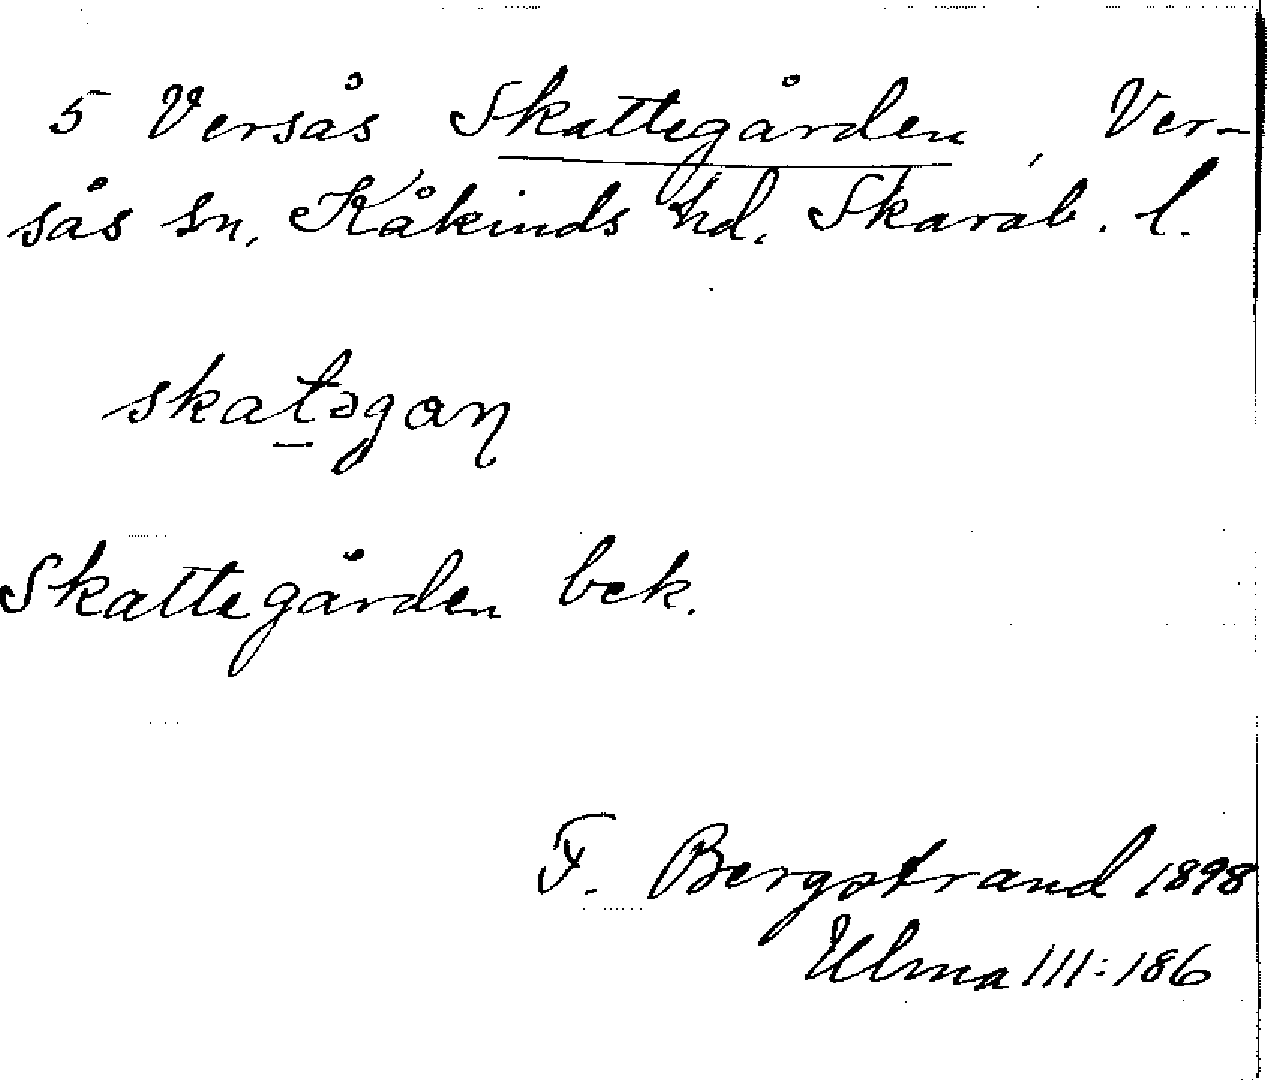 5 Versås Skattegården, Ver-
sås sn, Kåkinds hd, Skarab. l.
skat̲əgan̡
Skattegården bek.
F. Bergstrand 1898
Ulma 111:186